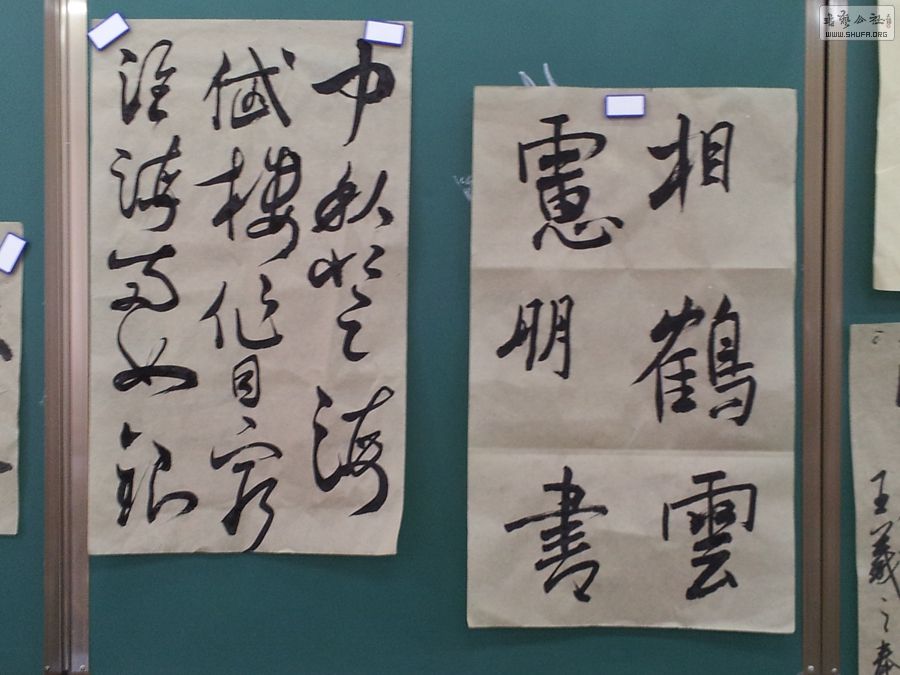 書藝公社
WWW.SHUFA.ORG
中秋登海
岱樓作目窮
淮海兩如銀
相鶴雲
明書
王羲之奉